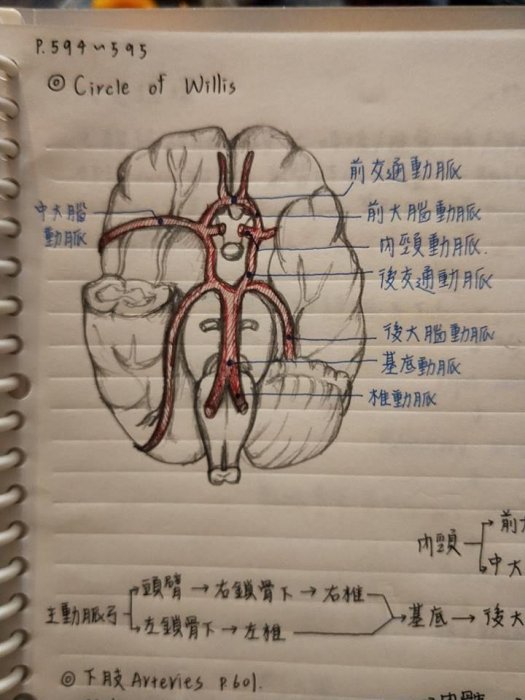 P.594~595
◎ Circle of Willis
前交通動脈
中大腦
動脈
前大腦動脈
內頸動脈
後交通動脈
後大腦動脈
基底動脈
椎動脈
內頸
前大
中大
頭臂 → 右鎖骨下 → 右椎
主動脈弓
基底 → 後大
左鎖骨下 → 左椎
◎ 下肢 Arteries P.601.